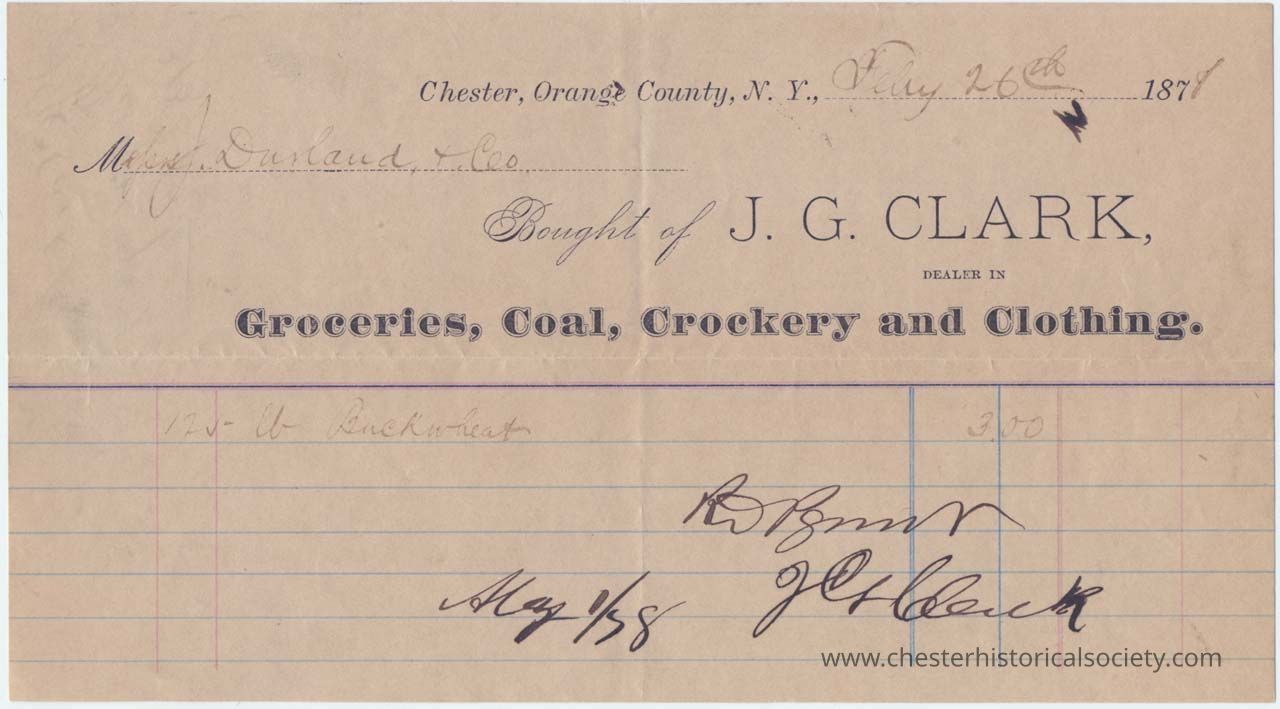 Chester, Orange County, N. Y., Feby 26th 1878
M J. Durland, & Co.
Bought of J. G. CLARK,
DEALER IN
Groceries, Coal, Crockery and Clothing.
125 lb Buckwheat 3.00
Rd Paymt
May 1/78 J G Clark
www.chesterhistoricalsociety.com